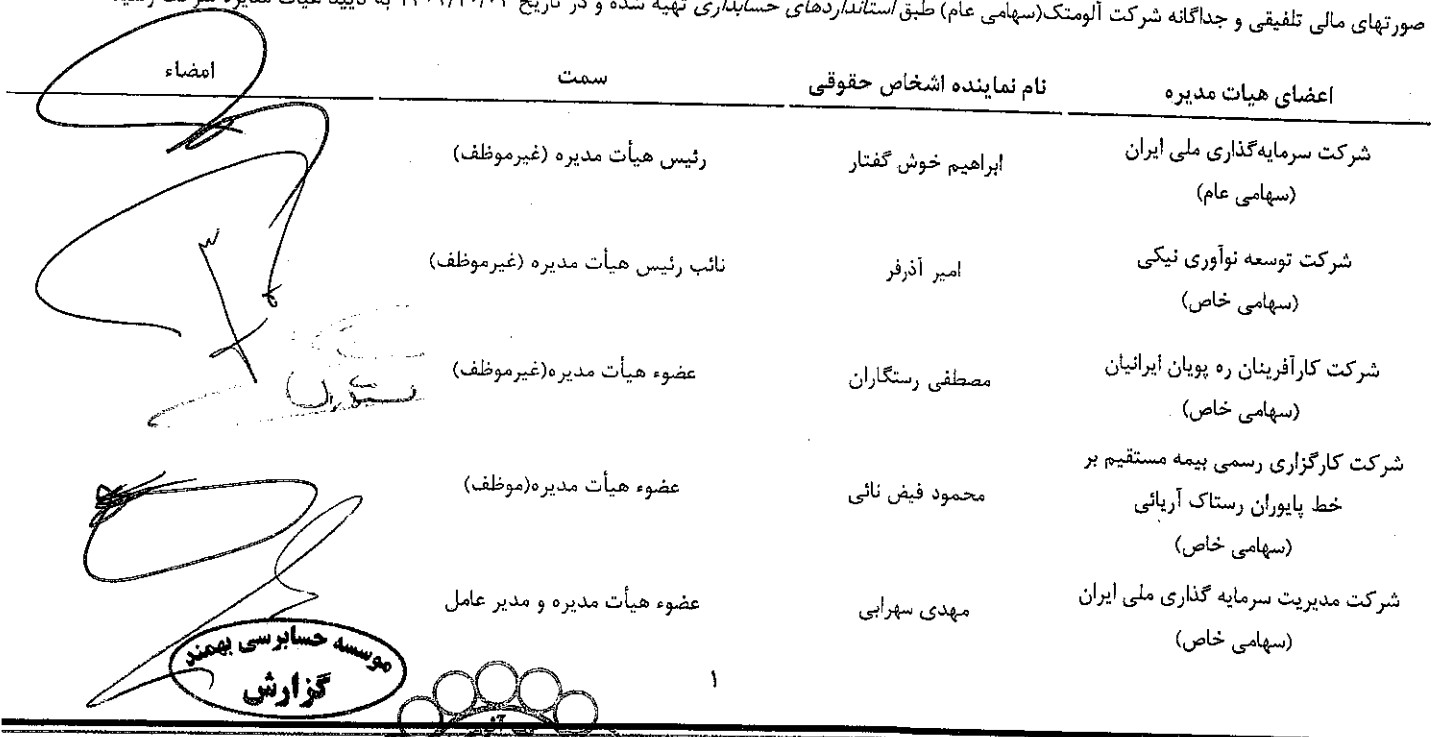 صورتهای مالی تلفیقی و جداگانه شرکت آلومتک(سهامی عام) طبق استانداردهای حسابداری تهیه شده و در تاریخ به تایید هیات مدیره شرکت
اعضای هیات مدیره نام نماینده اشخاص حقوقی سمت امضاء
شرکت سرمایه‌گذاری ملی ایران ابراهیم خوش گفتار رئیس هیأت مدیره (غیرموظف)
(سهامی عام)
شرکت توسعه نوآوری نیکی امیر آذرفر نائب رئیس هیأت مدیره (غیرموظف)
(سهامی خاص)
شرکت کارآفرینان ره پویان ایرانیان مصطفی رستگاران عضوء هیأت مدیره(غیرموظف)
(سهامی خاص)
شرکت کارگزاری رسمی بیمه مستقیم بر
خط پایوران رستاک آریائی محمود فیض نائی عضوء هیأت مدیره(موظف)
(سهامی خاص)
شرکت مدیریت سرمایه گذاری ملی ایران مهدی سهرابی عضوء هیأت مدیره و مدیر عامل
(سهامی خاص)
موسسه حسابرسی بهمند
گزارش
۱